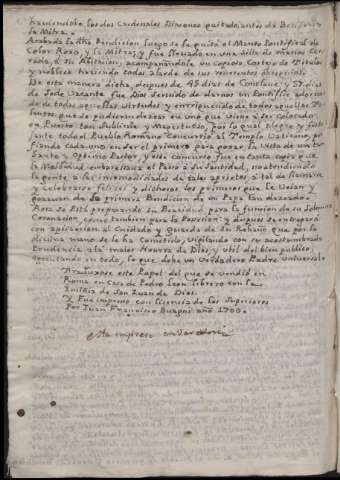 haziendolo los dos Cardenales Diaconos quitado antes de Bendicion
la Mitra.
Acabada la dha Bendicion luego se la quitó el Manto Pontifical de
Color Roxo, y la Mitra; y fue llevado en una Silla de manos Cer-
rada, á su Abitacion, acompañandole un copioso Cortejo de Titulos
y nobleza haziendo todos alarde de sus reverentes obsequios.
De esta manera dicha, despues de 45 dias de Conclave, y 57 dias
de Sede Vacante fue Dios servido de darnos un Pontifice adorna-
do de todas aquellas virtudes y enrriquezido de todos aquellos Ta-
lentos que se pudieran dezear en uno que viene á ser Colocado
en Puesto tan Sublime y Magestuoso, por lo qual alegre y jubi-
lante todo el Pueblo Romano Concurrio al Templo Vaticano, por
fiando cada uno en ser el primero para gozar la vista de un tan
Santo y Optimo Pastor, y este concurso fue en tanta copia que
la Multitud embarazava el Paso á su Santidad, no atendiendo
la gente á las incomodidades de tales aprietos á tal de llamarse
y Celebrarse felizes y dichosos los primeros que le veian y
gozavan de la primera Bendicion de un Papa tan deseado.
Aora se Está preparando su Beatitud para la funcion de su Solemne
Coronacion como tambien para la Posesion, y dispues se entregará
con aplicacion al Cuidado y Guarda de su Rebaño que por la
divina mano se le ha Cometido, vigilando con su acostumbrada
Prudencia á la maior Honrra de Dios, y util del bien publico,
executando en todo, lo que deve un Verdadero Padre universal.
Traduxose este Papel del que se vendió en
Roma en Casa de Pedro Leon librero con la
Insiña de San Juan de Dios.
Y Fue impreso con licencia de los Superiores
Por Juan Francisco Buagni año 1700.